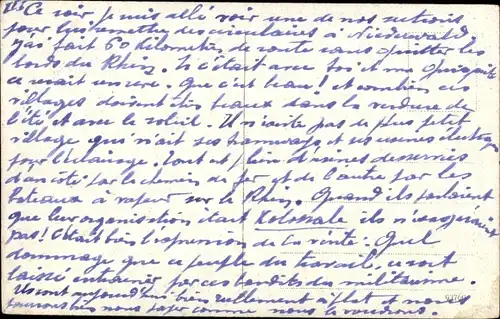 Ce soir je suis allé voir une de nos sections
pour lui remettre des circulaires à Niederwald
j'ai fait 60 kilomètres de route sans quitter les
bords du Rhin. Si c'était avec toi et me
ce serait encore. Que c'est beau! et combien ces
villages doivent être beaux dans la verdure de
l'été et avec le soleil. Il n'existe pas de plus petit
village qui n'ait ses tramways et ses usines électriques
pour l'éclairage. Tout est plein d'usines desservies
d'un côté par le chemin de fer et de l'autre par les
bateaux à vapeur sur le Rhin. Quand ils parlaient
que leur organisation était Kolossale ils n'exagéraient
pas! C'était bien l'expression de la vérité. Quel
dommage que ce peuple du travail, ce soit
laissé entrainer par ces bandits du militarisme.
Ils sont aujourd'hui bien réellement à plat et nous
pouvons bien nous taper comme nous le voudrons.